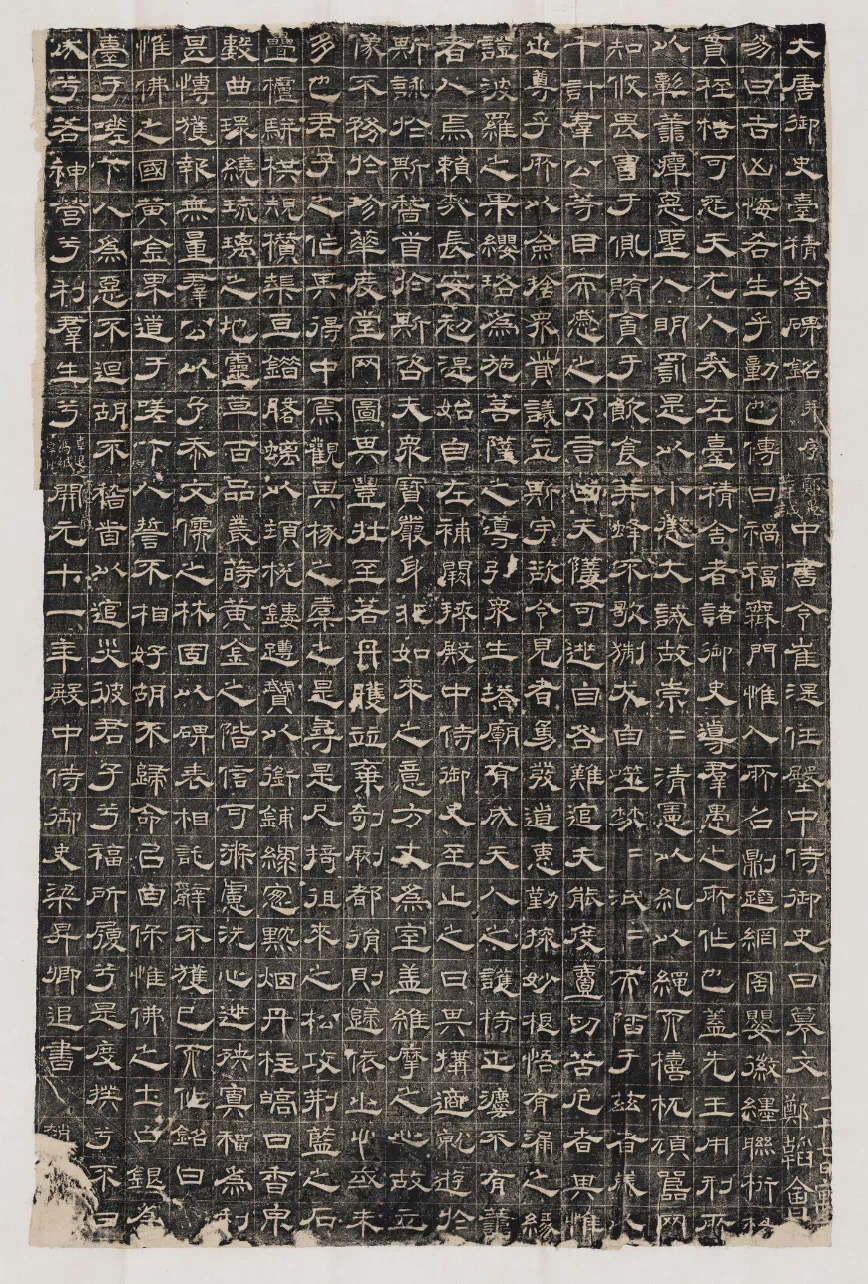 大唐御史臺精舍碑銘并序中書令崔湜任殿中侍御史日纂文
易曰吉凶悔吝生乎動也傳曰禍福無門惟人所召則蹈網罟嬰徽纆聯桁
貫桎梏可怨天尤人我左臺精舍者諸御史導羣愚之所作也蓋先王用刑所
以彰善癉惡聖人明罰是以小懲大誡故崇〻清憲以糺以繩而檮杌頑嚚罔
知攸畏冒于賄貪于飲食莽蜂不歌猘犬自噬〻泯〻而陷于茲者歲以
千計羣公等目而感之乃言曰天孽可逃自咎難追夫能度壹切苦厄者其惟
世尊乎所以僉捨衆貲議立斯宇欲令見者勇發道惠勤探妙根悟有漏之緣
證波羅之果纓珞為施菩薩之導引衆生塔廟有成天人之護持正法不有善
者人焉賴哉長安初湜始自左補闕拜殿中侍御史至止之日其構適就遊於
斯詠於斯稽首於斯咨夫衆寶嚴身非如來之意方丈為室蓋維摩之心故立
像不務於珍華度堂罔圖其豐壯至若丹雘並棄剞劂都捐則歸依之心或未
多也君子之作其得中焉觀其椓之橐之是尋是尺掎徂來之松攻荊藍之石
疊櫨駢栱規欑榘亘鍇胳螭以頭棁鏤蹲贙以銜鋪綠窗黕烟丹柱皜日香泉
數曲環繞琉璃之地靈草百品叢蒔黃金之階信可滌慮洗心逃殃寘福為利
甚愽獲報無量羣公以予忝文儒之林固以碑表相託辭不獲已而作銘曰
惟佛之國黃金界道于嗟下人誓不相好胡不歸命已自保惟佛之土白銀為
臺于嗟下人為惡不迴胡不稽首以追災彼君子兮福所履兮是度揆兮不日
成兮若神營兮利羣生兮開元十一年殿中侍御史梁昇卿追書